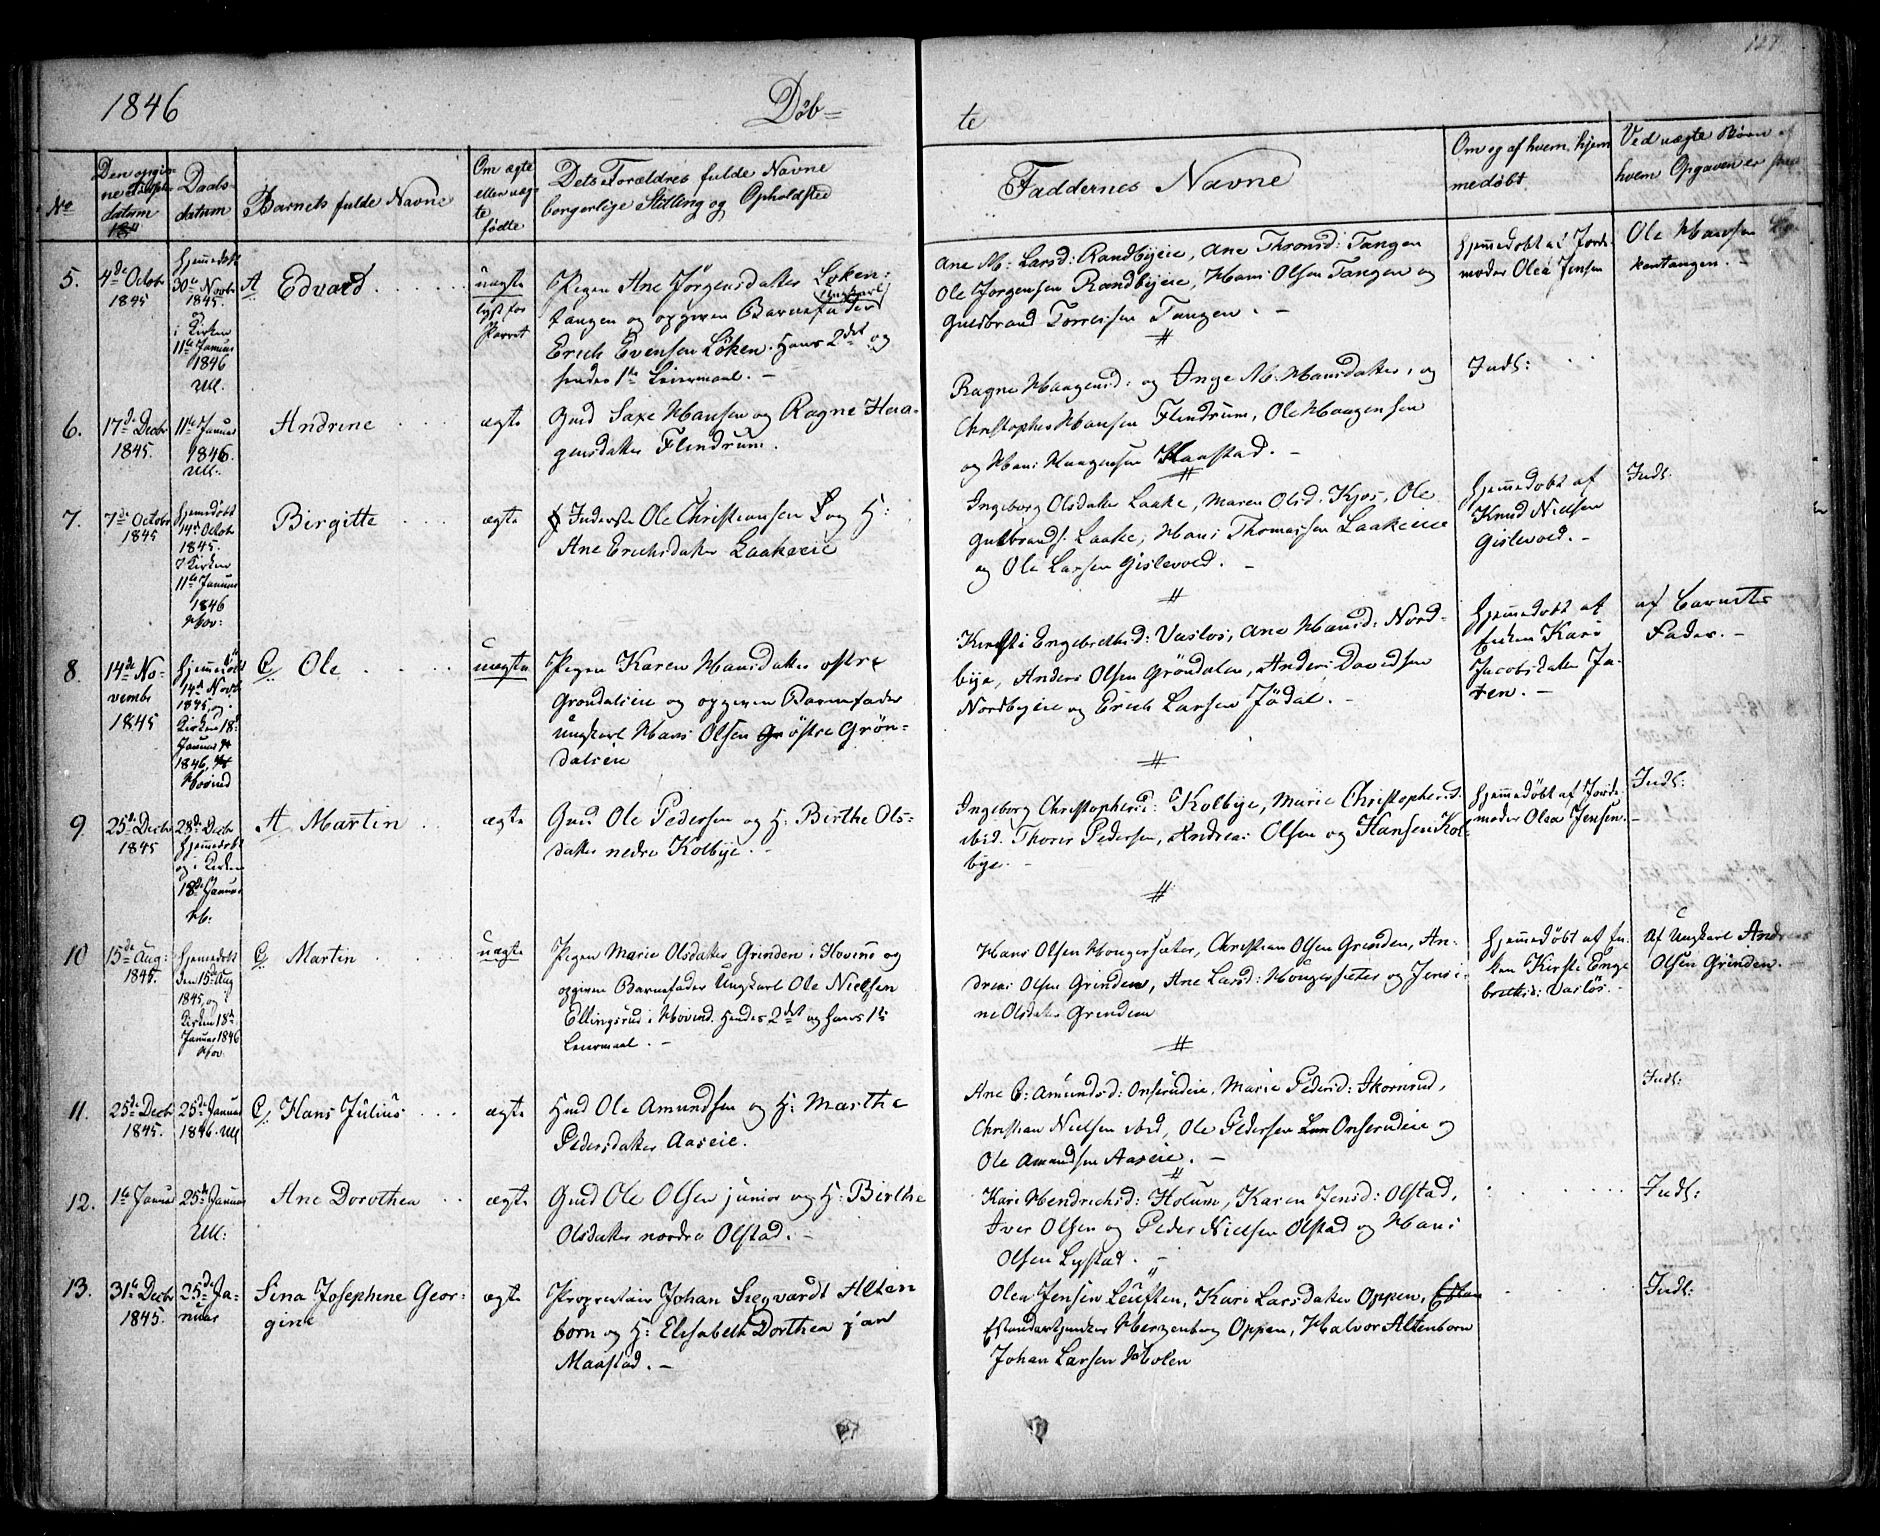 1846
Døb=
te
127.
No
Den opgiv-
ne Fødsels-
datum
18
Daabs-
datum
Barnets fulde Navne
Om ægte
eller uæg-
te
fødte
Dets Forældres fulde Navne
borgerlige Stilling og Opholdsted
Faddernes Navne
Om og af hvem hjem-
medøbt
Ved uægte Børn af
hvem Opgaven er
5.
4de Octobr
1845
hjemmedøbt
30te Novbr
1845.
og
i Kirken
11te Januar
1846
Ull.
A Edvard
uægte
Pigen Ane Jørgensdatter Løken-
tangen og opgiven Barnefader
Ungkarl
Erich Evensen Løken. Hans 2det og
hendes 1te Leiermaal. -
Ane M: Larsd: Randbyeie, Ane Thronsd: Tangen
Ole Jørgensen Randbyeie, Hans Olsen Tangen og
Guldbrand Torresen Tangen. -
Hjemmedøbt af Jorde-
moder Olea Jensen
Ole Hansen
kentangen.
6.
17de Decbr
1845.
11te Januar
1846.
Ull.
Andrine
ægte
Gmd Saxe Hansen og Ragne Haa-
gensdatter Flindrum.
Ragne Haagensd: og Inge M. Hansdatter, og
Christopher Hansen Flindrum, Ole Haagensen
og Hans Haagensen Haastad. -
Indl:
7.
7de Octobr
1845
hjemedøbt
14de Octob
1845.
i Kirken
11te Januar
1846
Hov:
Birgitte
ægte
Inderste Ole Christiansen og H:
Ane Erichsdatter Laakeeie
Ingeborg Olsdatter Laake, Maren Olsd. Kjos, Ole
Gulbrands. Laake, Hans Thomassen Laakeeie
og Ole Larsen Gislevold. -
Hjemmedøbt af
Knud Nielsen
Gislevold. -
Indl.
8.
14de No-
vembr
1845
hjemmedøbt
14de Novb.
1845, og i
Kirken 18de
Januar
1846,
Hovind
C, Ole
uægte
Pigen Karen Hansdatter østre
Grøndaleie og opgiven Barnefader
Ungkarl Hans Olsen østre Grøn-
daleie
Kirsti Engebretsd: Vasløs, Ane Hansd: Nord-
bye, Anders Olsen Grøndalen, Anders Davidsen
Nordbyeie og Erich Larsen Jødal. -
Hjemmedøbt af
Enken Kari
Jacobsdatter Ja-
ren. -
af Barnets
Fader. -
9.
25de Decbr
1845
28de Decbr
hjemmedøbt
og i Kirken
18de Januar
A, Martin
ægte
Gmd Ole Pedersen og H: Birthe Ols-
datter nedre Kolbye. -
Ingeborg Christophersd: Kolbye, Marie Christophersd.
ibid. Thorer Pedersen, Andreas Olsen og Hansen Kol-
bye. -
Hjemmedøbt af Jorde-
moder Olea Jensen.
Indl:
10
15de Aug:
1845.
hjemmedøbt
den 15de Aug
1845, og i
Kirken 18de
Januar 1846
Hov.
C, Martin
uægte
Pigen Marie Olsdatter Grinden i Hovind og
opgiven Barnefader Ungkarl Ole Nielsen
Ellingsrud i Hovind. Hendes 2det og hans 1te
Leiermaal. -
Hans Olsen Hougersæter, Christian Olsen Grinden, An-
dreas Olsen Grinden, Ane Larsd: Hougersæter og Jensi-
ne Olsdatter Grinden
Hjemmedøbt af En-
ken Kirsti Enge-
bretsd: Vasløs. -
Af Ungkarl Andreas
Olsen Grinden. -
11.
25de Decbr
1845.
25de Januar
1846. Ull
C, Hans Julius
ægte
Gmd Ole Amundsen og H: Marthe
Pedersdatter Aaseie.
Ane C: Amundsd: Onserudeie, Marie Pedersd: Skornsrud,
Christian Nielsen ibid, Ole Pedersen Onserudeie og
Ole Amundsen Aaseie. -
Indl:
12.
1te Januar
25de Januar
Ull:
Ane Dorothea
ægte
Gmd Ole Olsen junior og H: Birthe
Olsdatter nordre Olstad. -
Kari Hendrichsd: Holum, Karen Jensd: Olstad,
Iver Olsen og Peder Nielsen Olstad og Hans
Olsen Lystad. -
Indl:
13.
31te Decbr
1845.
25de Ja-
nuar
Sina Josephine Geor-
gine
ægte
Proprietair Johan Siegvardt Alten
born og H: Elisabeth Dorthea
Maastad. -
Olea Jensen Leuften, Kari Larsdatter Oppen,
Herzenberg Oppen, Halvor Altenborn
Johan Larsen Holen
Indl: